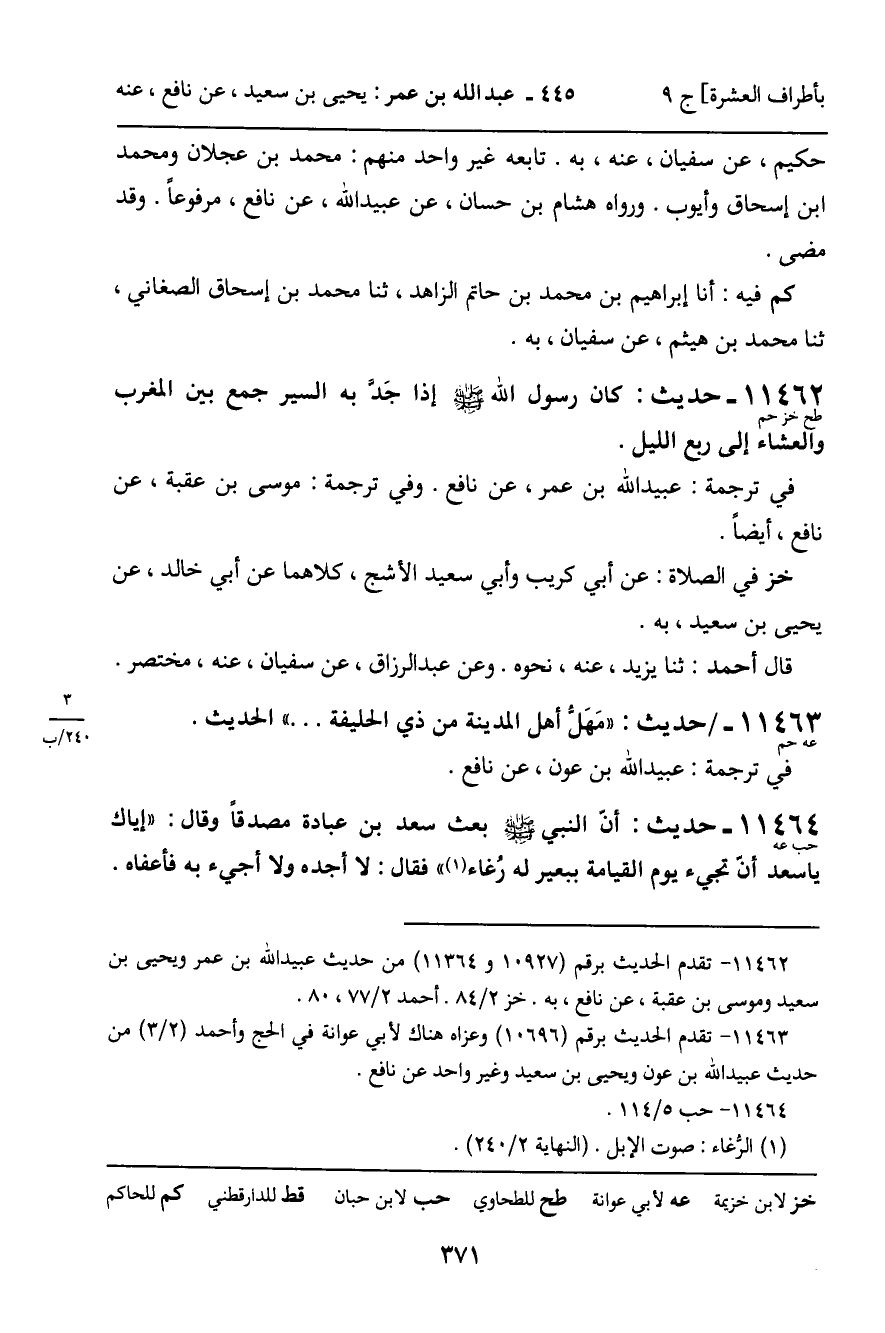 بأطراف العشرة] ج ٩ ٤٤٥ ـ عبدالله بن عمر : يحيى بن سعيد ، عن نافع ، عنه
حكيم ، عن سفيان ، عنه ، به . تابعه غير واحد منهم : محمد بن عجلان ومحمد
ابن إسحاق وأيوب . ورواه هشام بن حسان ، عن عبيدالله ، عن نافع ، مرفوعاً . وقد
مضى .
كم فيه : أنا إبراهيم بن محمد بن حاتم الزاهد ، ثنا محمد بن إسحاق الصغاني ،
ثنا محمد بن هيثم ، عن سفيان ، به .
١١٤٦٢ ـ حديث : كان رسول الله ﷺ إذا جَدَّ به السير جمع بين المغرب
طح خز حم
والعشاء إلى ربع الليل .
في ترجمة : عبيدالله بن عمر ، عن نافع . وفي ترجمة : موسى بن عقبة ، عن
نافع ، أيضاً .
خز في الصلاة : عن أبي كريب وأبي سعيد الأشج ، كلاهما عن أبي خالد ، عن
يحيى بن سعيد ، به .
قال أحمد : ثنا يزيد ، عنه ، نحوه . وعن عبدالرزاق ، عن سفيان ، عنه ، مختصر .
٣
١١٤٦٣ ـ /حديث : «مَهَلُّ أهل المدينة من ذي الحليفة . . .» الحديث .
٢٤٠/ب
عه حم
في ترجمة : عبيدالله بن عون ، عن نافع .
١١٤٦٤ ـ حديث : أنّ النبي ﷺ بعث سعد بن عبادة مصدقاً وقال : «إياك
حب عه
ياسعد أنّ تجيء يوم القيامة ببعير له رُغاء(١)» فقال : لا أجده ولا أجيء به فأعفاه .
١١٤٦٢- تقدم الحديث برقم (١٠٩٢٧ و ١١٣٦٤) من حديث عبيدالله بن عمر ويحيى بن
سعيد وموسى بن عقبة ، عن نافع ، به . خز ٨٤/٢ . أحمد ٧٧/٢ ، ٨٠ .
١١٤٦٣- تقدم الحديث برقم (١٠٦٩٦) وعزاه هناك لأبي عوانة في الحج وأحمد (٣/٢) من
حديث عبيدالله بن عون ويحيى بن سعيد وغير واحد عن نافع .
١١٤٦٤- حب ١١٤/٥ .
(١) الرُّغاء : صوت الإبل . (النهاية ٢٤٠/٢) .
خز لابن خزيمة عه لأبي عوانة طح للطحاوي حب لابن حبان قط للدارقطني كم للحاكم
٣٧١